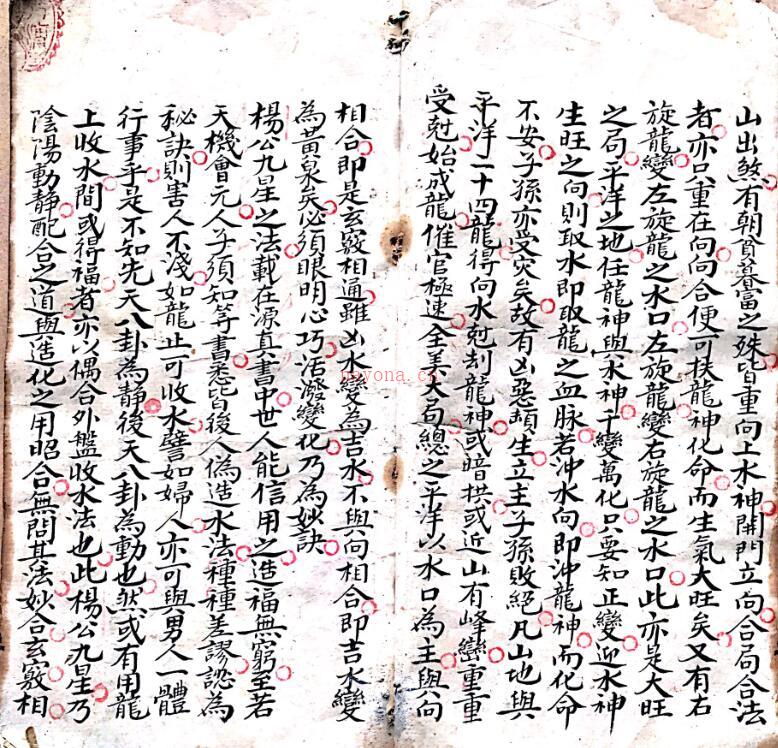 山出煞有朝貧暮富之殊皆重向上水神開門立向合局合法
者亦只重在向向合便可扶龍神化命而生氣大旺矣又有右
旋龍變左旋龍之水口左旋龍變右旋龍之水口此亦是大旺
之局平洋之地任龍神與水神千變萬化只要知正變迎水神
生旺之向則取水即取龍之血脉若沖水向即沖龍神而化命
不安子孫亦受灾矣故有凶惡頑生立主子孫敗絕凡山地與
平洋二十四龍得向水尅刦龍神或暗拱或近山有峰巒重重
受尅始成龍催官極速全美大旬總之平洋以水口為主與向
相合即是玄竅相通雖凶水變為吉水不與向相合即吉水變
為黃泉矣必須眼明心巧活潑變化乃為妙訣
楊公九星之法載在源真書中世人能信用之造福無窮至若
天機會元人子須知等書悉皆後人偽造水法種種差謬認為
秘訣則害人不淺如龍止可收水譬如婦人亦可與男人一體
行事乎是不知先天八卦為靜後天八卦為動也然或有用龍
上收水間或得福者亦以偶合外盤收水法也此楊公九星乃
陰陽動靜配合之道與造化之用昭合無間其法妙合玄竅相
nayona.cn